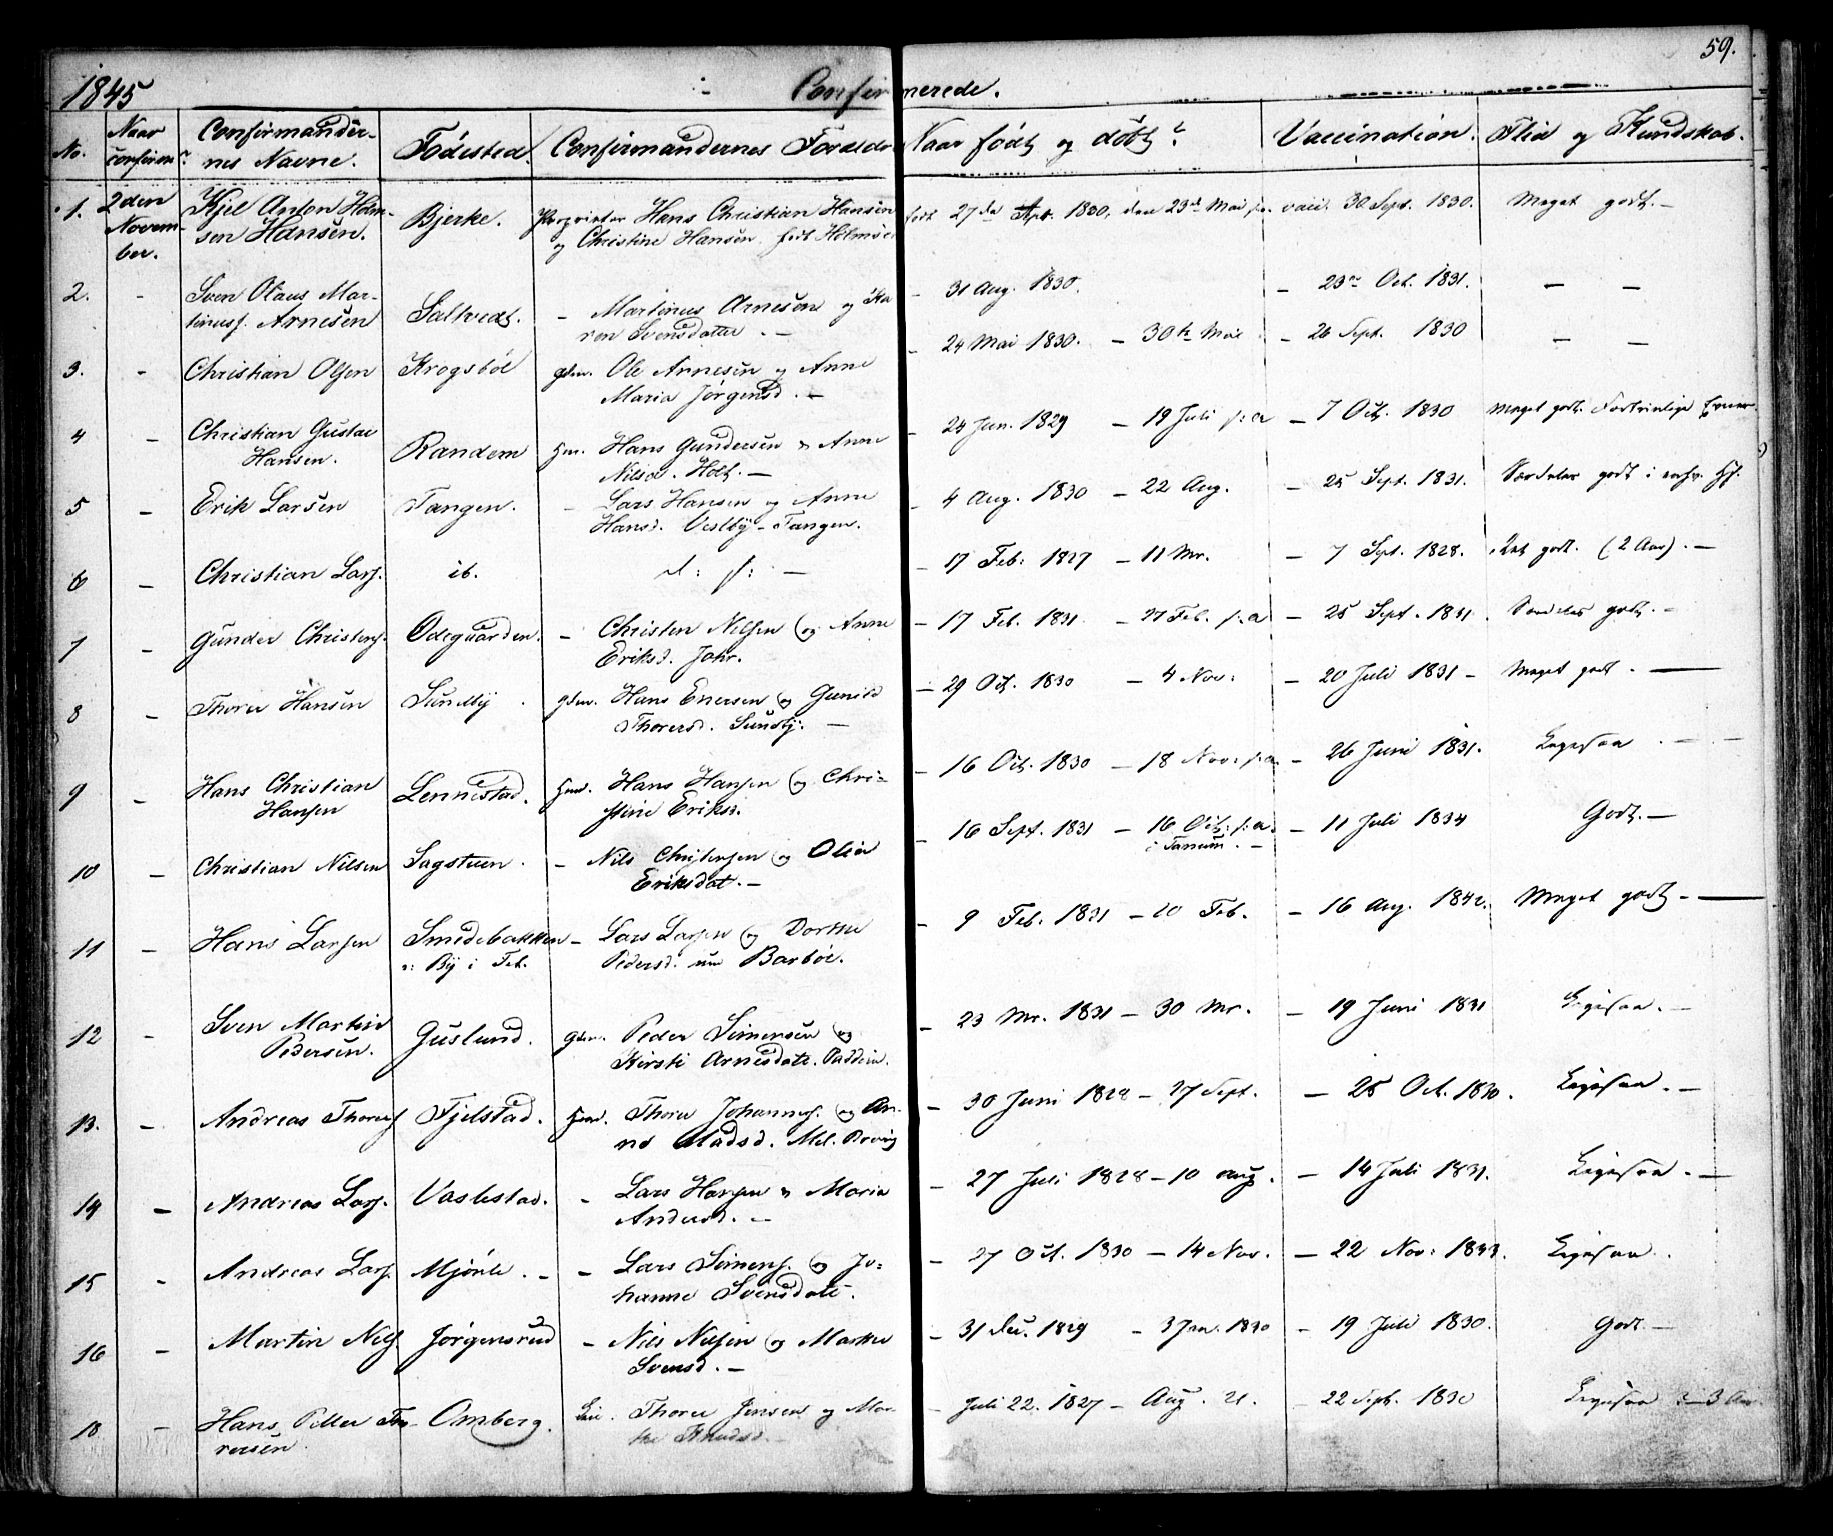 59.
1845 Confirmerede.
No. Naar confirm? Confirmandernes Navne. Födested. Confirmandernes Foraeldre Naar födt og döbt? Vaccination. Flid og Kundskab.
1. 2den November. Kjel Anton Holmsen Hansen. Bjerke. Proprietær Hans Christian Hansen og Christine Hansen født Holmsen født 27de Sept. 1830, den 23de Mai vacc. 30 Sept. 1830. Meget godt. —
2. - Sven Olaus Martinuss. Arnesen Saltvedt. — Martinus Arnesen og Karen Svensdatter. — - 31 Aug. 1830. — 23de Oct. 1831. — —
3. - Christian Olsen Krogsböl gdm. Ole Arnesen og Anne Maria Jørgensd. — - 24 Mai 1830. — 30te Mai - 26 Sept. 1830 — —
4 — Christian Gustav Hansen. Randem Hans Gundersen & Anne Nilsd. Holt. — - 24 Jun. 1829 — 19 Juli s: a — 7 Oct. 1830 Meget godt. Fortrinlige Evner.
5 — Erik Larsen Tangen. - Lars Hansen og Anne Hansd. Vestby-Tangen. - 4 Aug. 1830 — 22 Aug. — 25 Sept. 1831. Særdeles godt i
6 — Christian Lars. ib. d: s: — - 17 Feb: 1827 — 11 Mr. — 7 Sept. 1828. godt. (2 Aar). —
7 — Gunder Christens. Ödeguarden. - Christen Nilsen og Anne Eriksd. Jahr. - 17 Feb. 1831. — 27 Feb. s: a — 25 Sept. 1831. Særdeles godt. -
8 — Thorer Hansen Sundby. gdm. Hans Enersen og Gunild Thorersd. Sundby. — — 29 Oct. 1830 — 4 Nov: — 20 Juli 1831 - Meget godt. —
9 — Hans Christian Hansen Lennestad. Hans Hansen og Christine Eriksd. - 16 Oct. 1830 — 18 Nov: s: a — 26 Juni 1831. Ligesaa. - -
10 — Christian Nilsen Sagstuen. - Nils Christensen og Olia Eriksdat. — - 16 Sept. 1831 — 16 Oct: s: a. i Tanum. — — 11 Juli 1834 Godt. —
11 — Hans Larsen Smedebakken ɔ: By i Feb. — Lars Larsen og Dorthe Pedersd. Barböl. - 9 Feb. 1831 — 20 Feb. — 16 Aug. 1842. Meget godt. —
12 - Sven Martin Pedersen. Guslund. gdm. Peder Simensen og Kirsti Arnesdatt. — 23 Mr. 1831 — 30 Mr. — 19 Juni 1831 Ligesaa. —
13. — Andreas Thorers Fjelstad. Thorer Johannes. og Anne Madsd. — 30 Juni 1828 — 27 Sept. — 25 Oct. 1830. Ligesaa. —
14 — Andreas Lars. Vaslestad. - Lars Hansen & Maria Andersd. — — 27 Juli 1828 — 10 Aug. — 14 Juli 1831. Ligesaa. —
15 - Andreas Lars. Mjönli. - - Lars Simens. og Johanne Svensdatt. - 27 Oct. 1830 — 14 Nov. — 22 Nov: 1833. Ligesaa.
16 — Martin Nils Jörgensrud - Nils Nilsen og Marthe Svensd. — - 31 Dec. 1829 — 3 Jan. 1830 — 19 Juli 1830. Godt. —
18 — Hans Petter Thorersen Omberg. Thorer Jensen og Marthe Knudsd. - Juli 22. 1827 — Aug. 21. — 22 Sept. 1830 Ligesaa